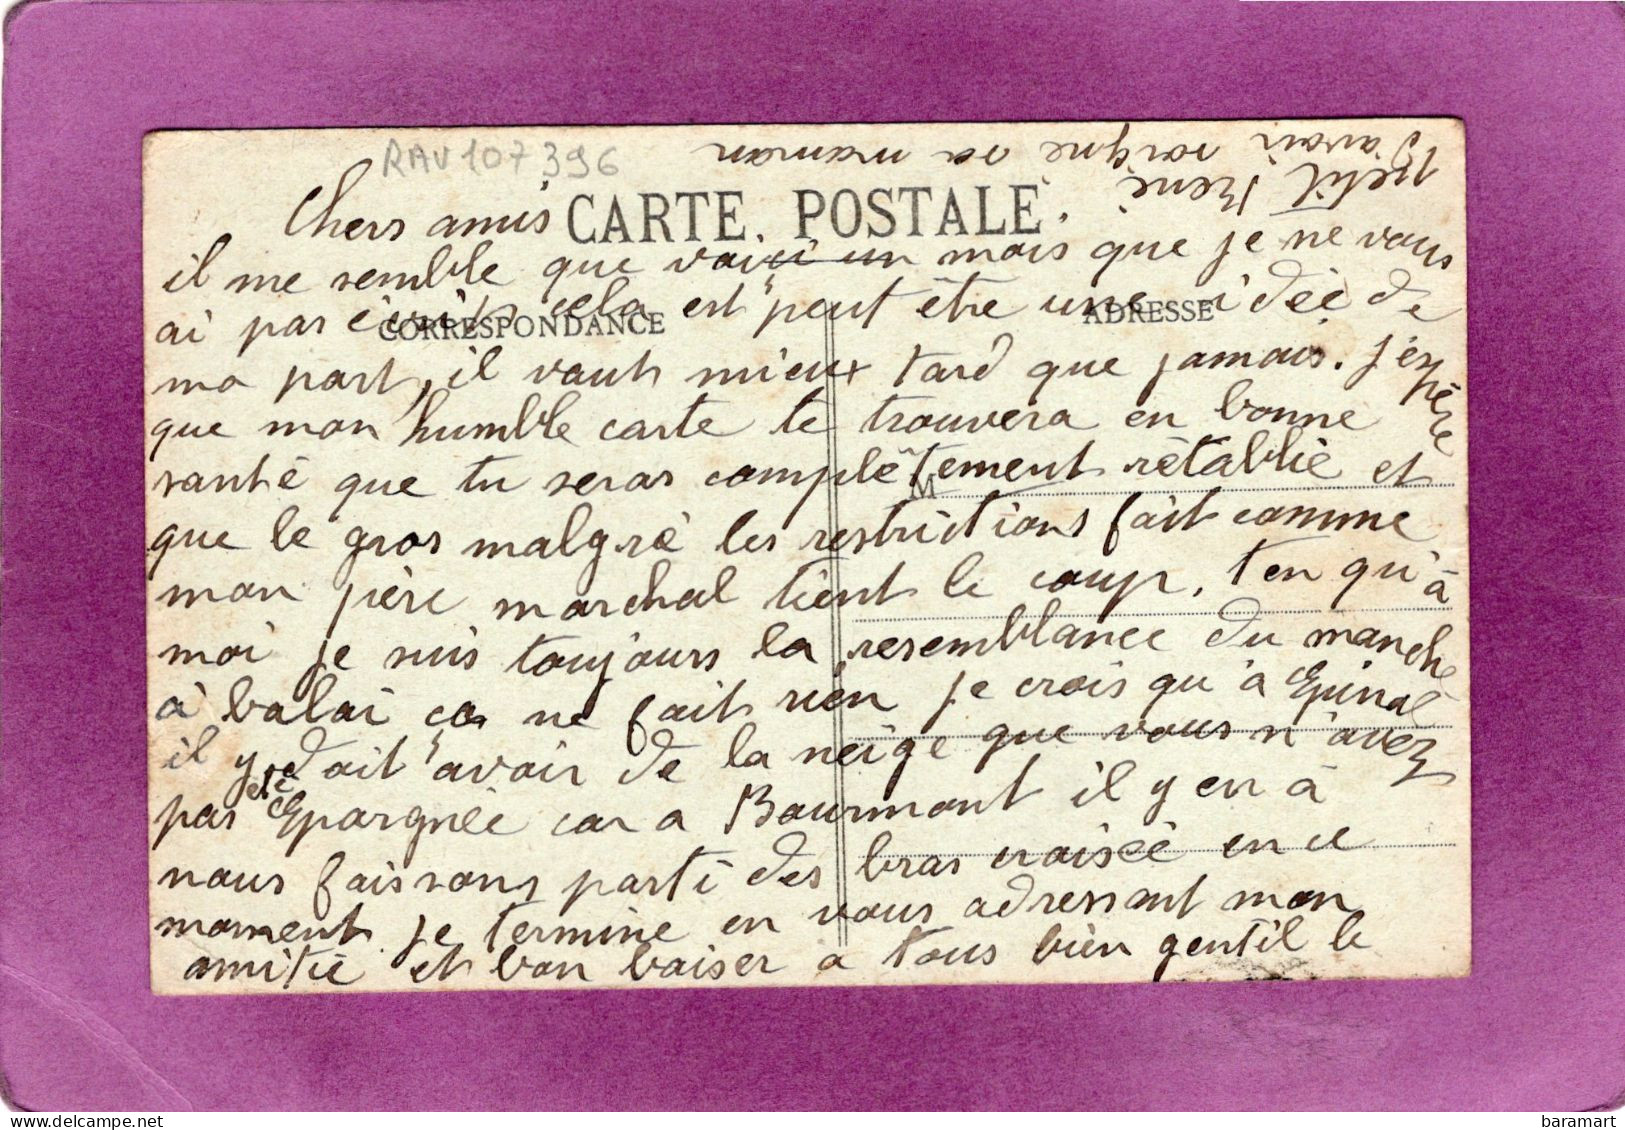 RAV 107 396
Chers amis
CARTE POSTALE
il me semble que voici un mois que je ne vous
ai pas écrits cela est peut être une idée de
CORRESPONDANCE
ADRESSE
ma part, il vaut mieux tard que jamais. J'espère
que mon humble carte te trouvera en bonne
santé que tu seras complêtement rétablié et
M
que le gros malgré les restrictions fait comme
mon père marchal tient le coup, ten qu'à
moi je suis toujours la resemblance du manche
à balai ça ne fait rien je crois qu'à Epinal
il y doit avoir de la neige que vous n'avez
pas été Epargnée car a Bourmont il y en à
nous faissons parti des bras croisée en ce
moment je termine en vous adressant mon
amitié et bon baiser a tous bien gentil le
petit René
d'avoir soigne sa maman
baramart